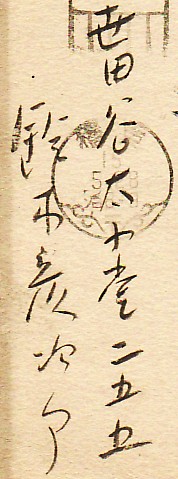 世田谷太子堂二五五
鈴木彦次郎